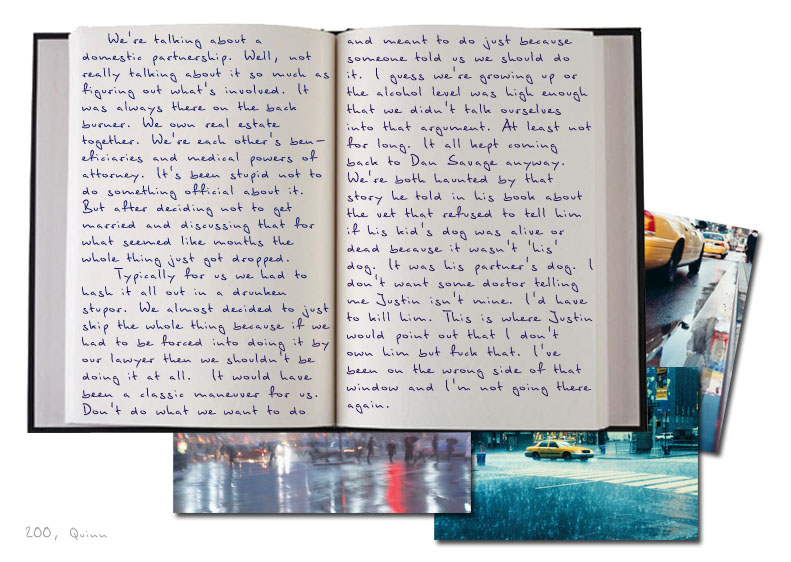 We're talking about a
domestic partnership. Well, not
really talking about it so much as
figuring out what's involved. It
was always there on the back
burner. We own real estate
together. We're each other's ben-
eficiaries and medical powers of
attorney. It's been stupid not to
do something official about it.
But after deciding not to get
married and discussing that for
what seemed like months the
whole thing just got dropped.
Typically for us we had to
hash it all out in a drunken
stupor. We almost decided to just
skip the whole thing because if we
had to be forced into doing it by
our lawyer then we shouldn't be
doing it at all. It would have
been a classic maneuver for us.
Don't do what we want to do
and meant to do just because
someone told us we should do
it. I guess we're growing up or
the alcohol level was high enough
that we didn't talk ourselves
into that argument. At least not
for long. It all kept coming
back to Dan Savage anyway.
We're both haunted by that
story he told in his book about
the vet that refused to tell him
if his kid's dog was alive or
dead because it wasn't 'his'
dog. It was his partner's dog. I
don't want some doctor telling
me Justin isn't mine. I'd have
to kill him. This is where Justin
would point out that I don't
own him but fuck that. I've
been on the wrong side of that
window and I'm not going there
again.
200, Quinn